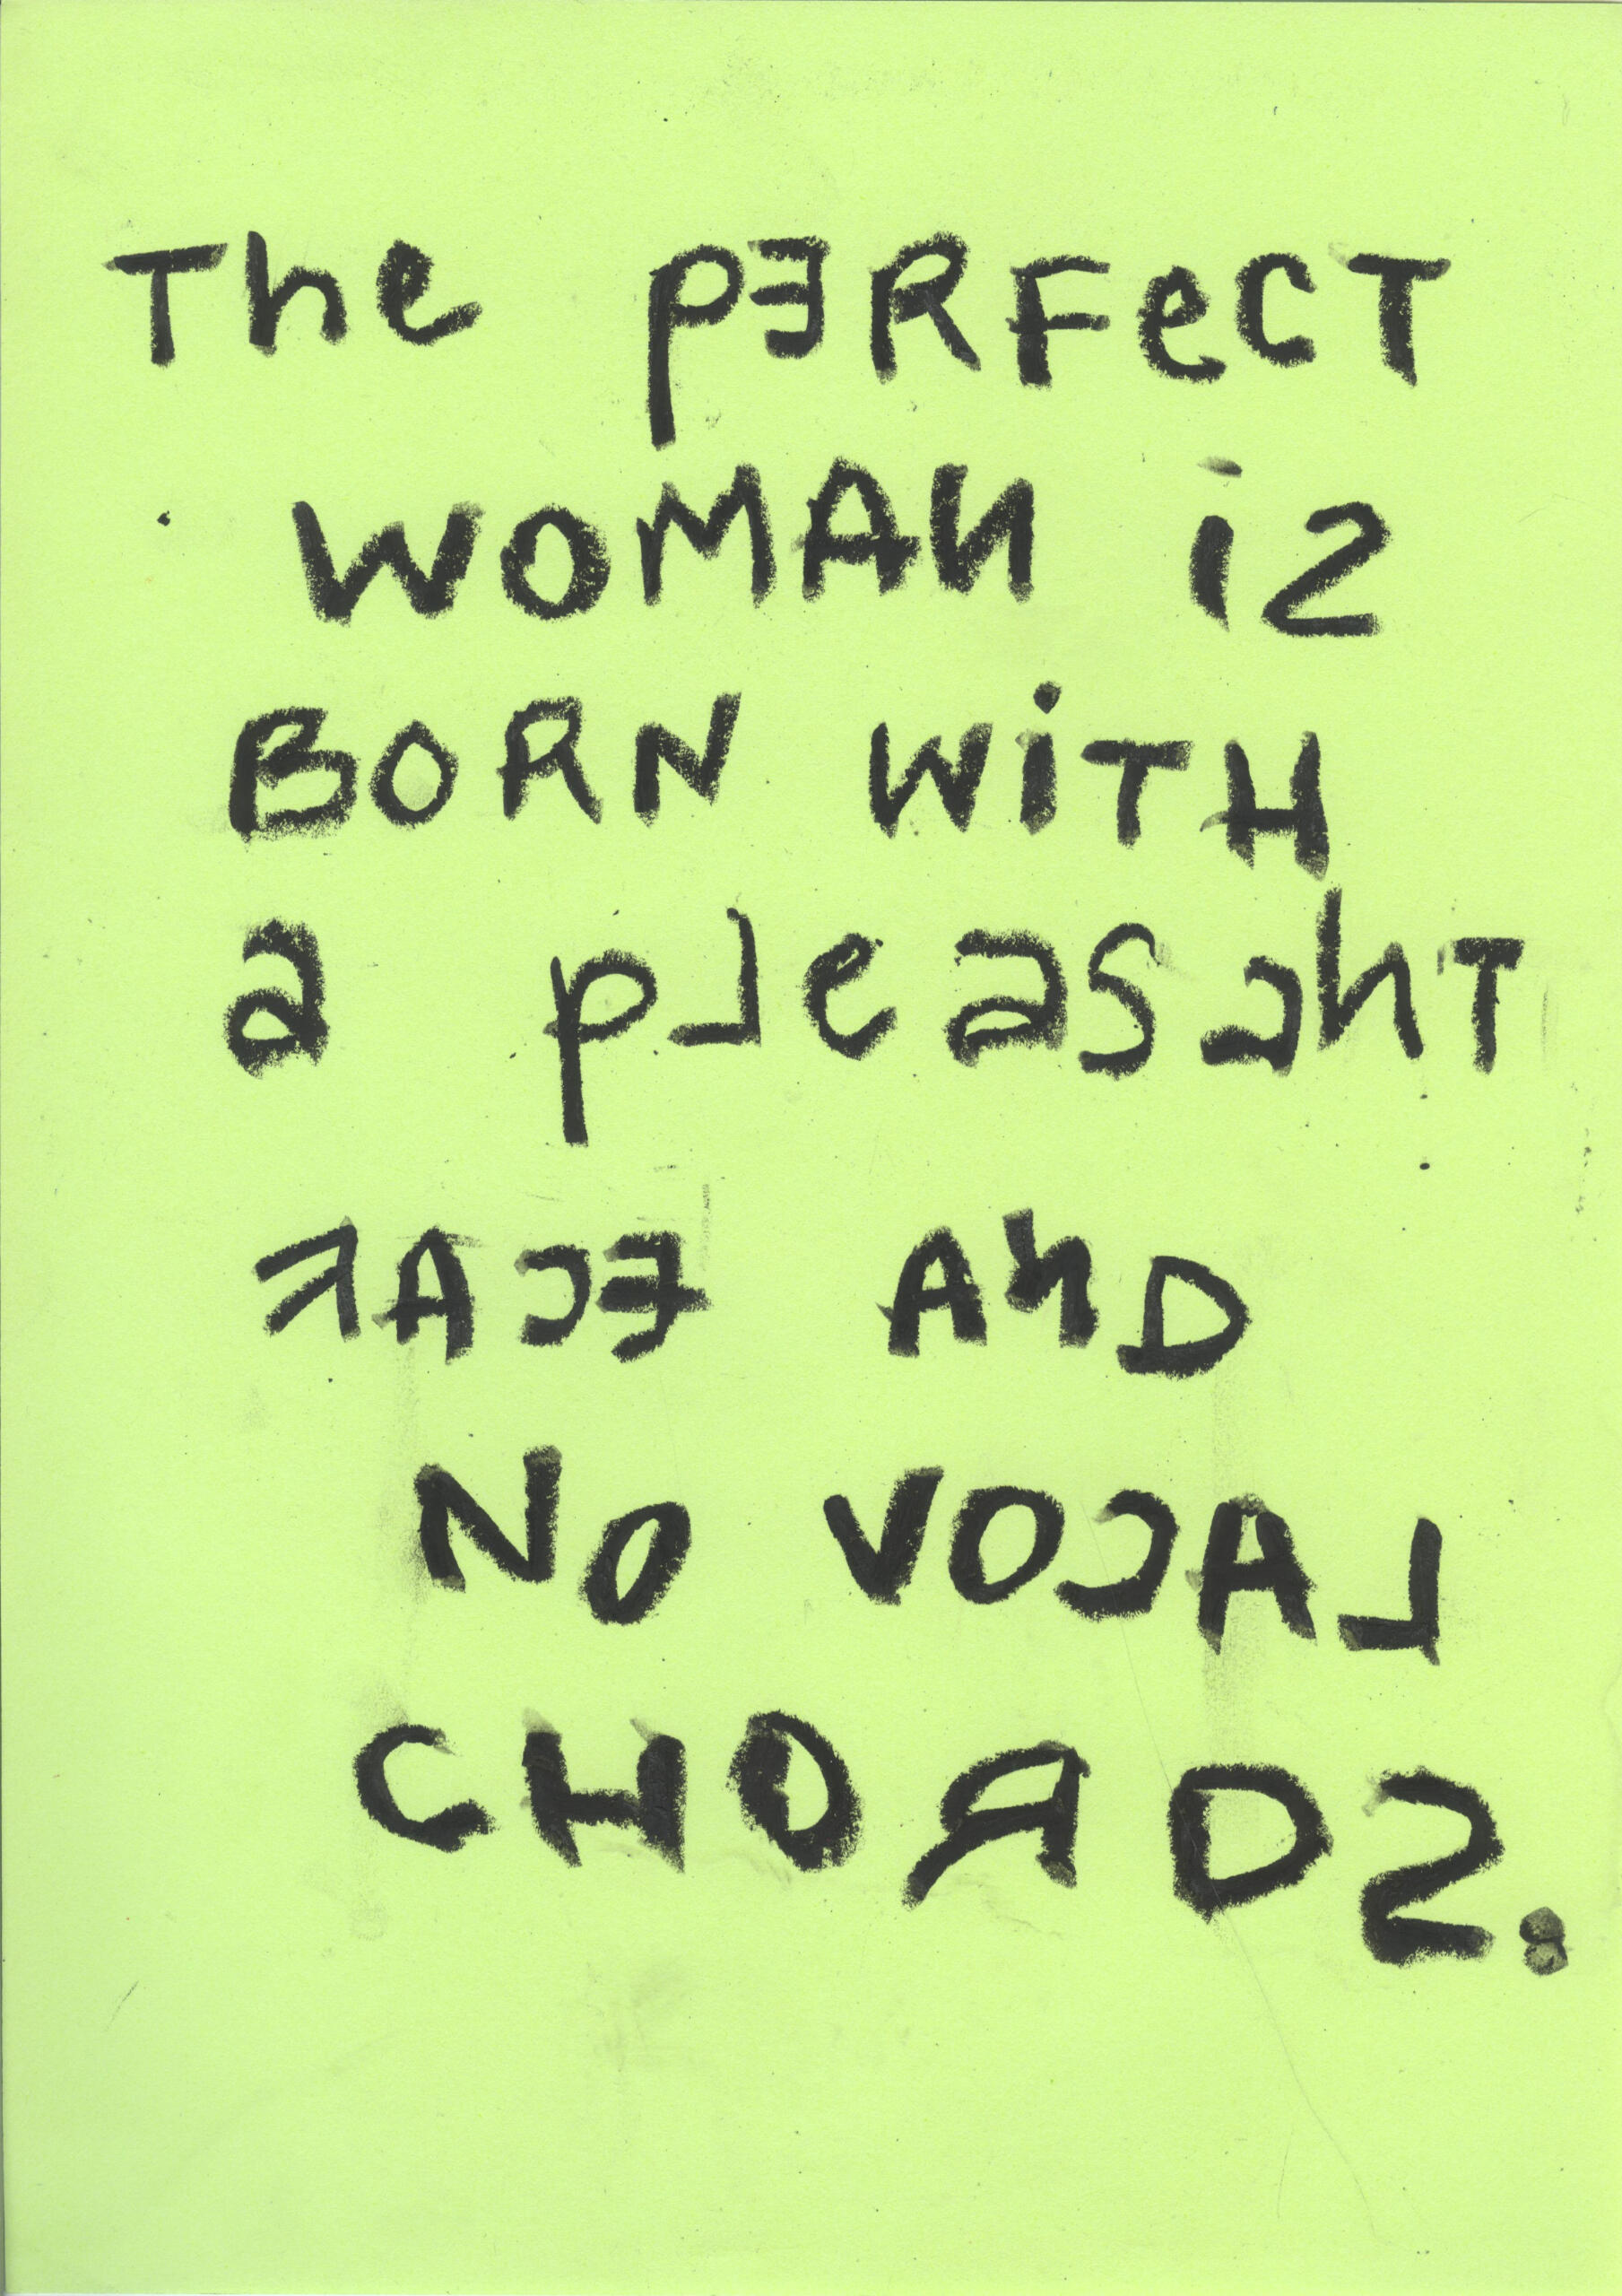 The pERFeCT
WOMAN iS
BORN WiTH
a pLeasanT
FACE AND
NO VOCAL
CHORDS.